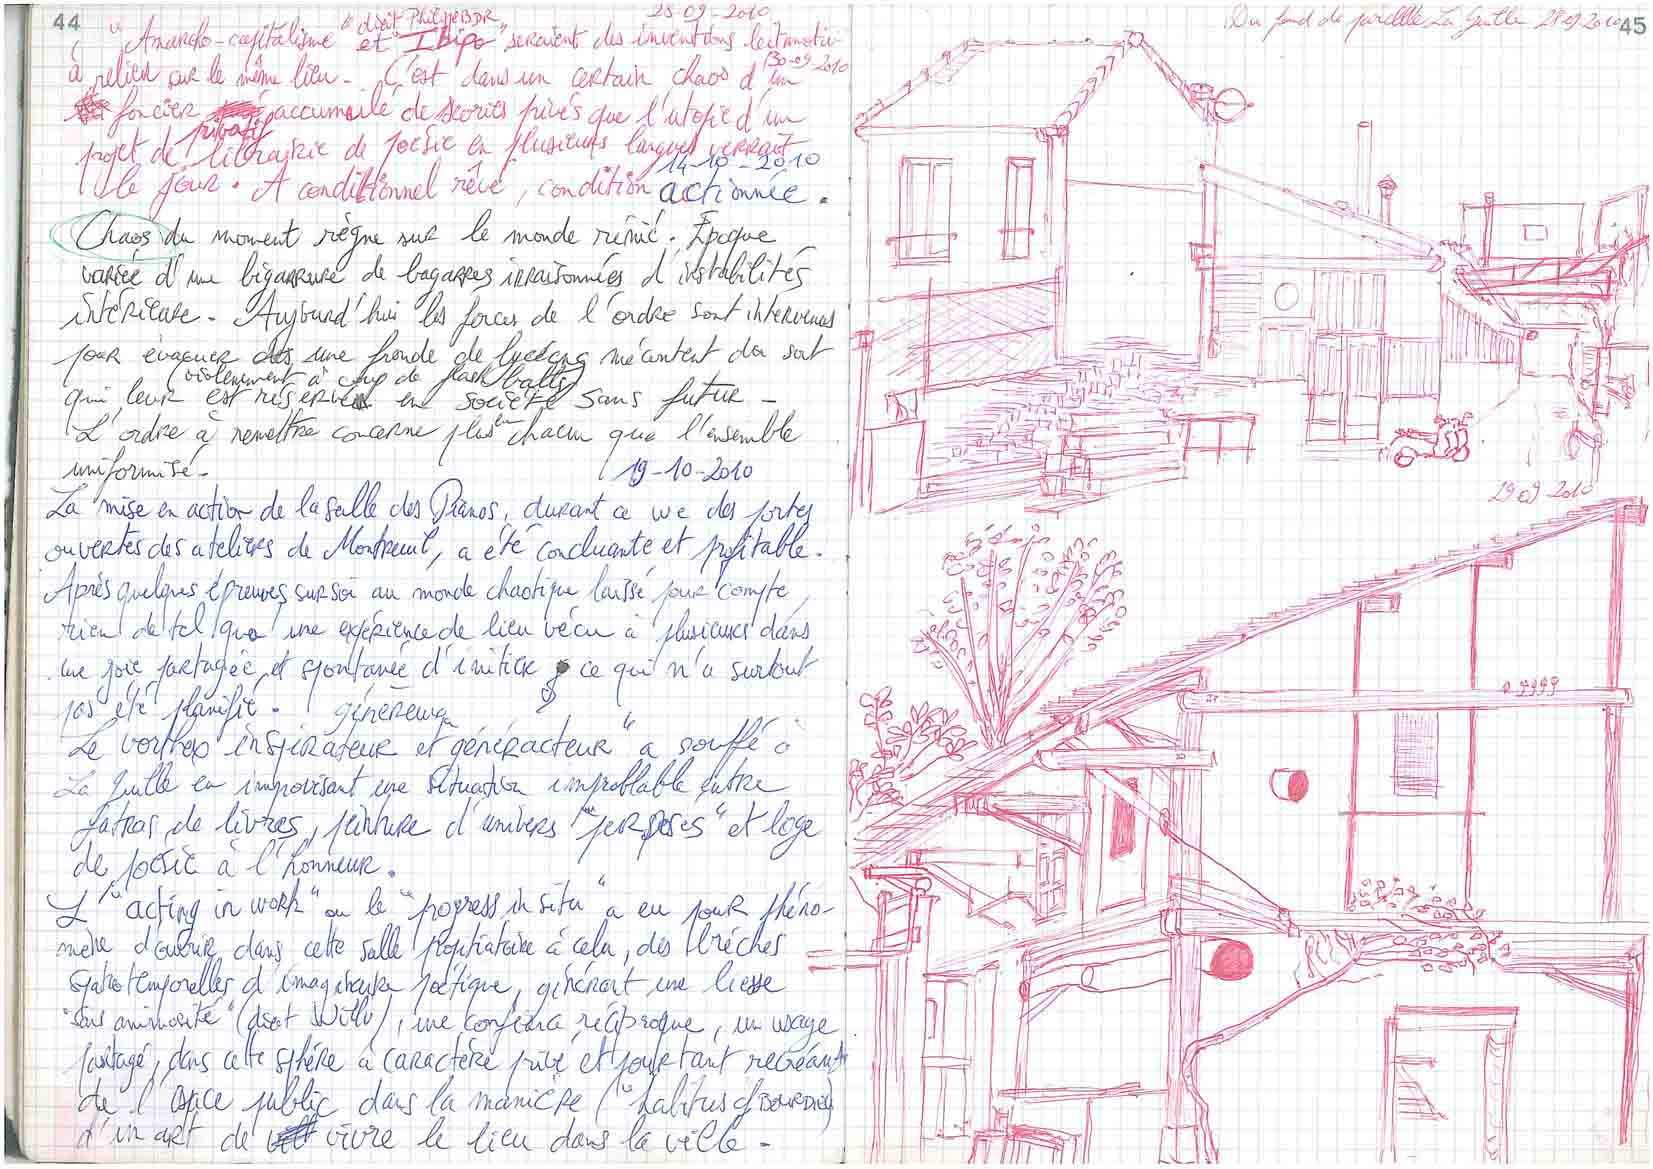 44
28-09-2010
"Anarcho-capitalisme "disait Philippe BDR
et "Ibipo" seraient des inventions leitmotiv
à relier sur le même lieu. C'est dans un certain chaos d'un
30-09-2010
foncier privatif accumulé de scories privés que l'utopie d'un
projet de librairie de poésie en plusieurs langues verrait
le jour. A conditionnel rêvé, condition actionnée.
14-10-2010
Chaos du moment règne sur le monde réifié. Epoque
variée d'une bigarrure de bagarres irraisonnées d'instabilités
intérieure. Aujourd'hui les forces de l'ordre sont intervenues
pour évacuer une fronde de lycéens mécontent du sort
(violemment à coup de flash balls)
qui leur est réservé en société sans futur -
L'ordre à remettre concerne plus chacun que l'ensemble
uniformisé.
19-10-2010
La mise en action de la salle des Pianos, durant ce we des portes
ouvertes des ateliers de Montreuil, a été concluante et profitable.
Après quelques épreuves sur soi au monde chaotique laissé pour compte,
rien de tel que une expérience de lieu vécu à plusieurs dans
une joie partagée et spontanée d'initier ce qui n'a surtout
pas été planifié.
Le vortex inspirateur et généracteur" a soufflé à
La Guille en improvisant une situation improblable entre
fatras de livres, peinture d'univers "perposés" et loge
de poésie à l'honneur.
L'"acting in work" ou le "progress in situ" a eu pour phéno-
mène d'ouvrir, dans cette salle propitiatoire à cela, des brèches
spatiotemporelles d'imaginaire poétique, générant une liesse
"sans animosité" (disait Willy), une confiance réciproque, un usage
partagé, dans cette sphère à caractère privé et pourtant recréant
de l'espace public dans la manière ("habitus of BOURDIEU)
d'un art de vivre le lieu dans la ville.
Du fond de parcelle La Guille 28 09 2010
45
29 09 2010